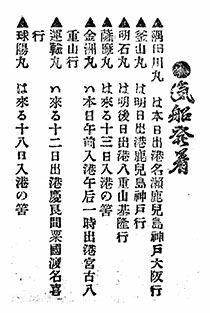 汽船發着
▲隅田川丸 は本日出港名瀬鹿兒島神戸大阪行
▲釜山丸 は明日出港鹿兒島神戸行
▲明石丸 は明後日出港八重山基隆行
▲薩摩丸 は來る十三日入港の筈
▲金洲丸 は本日午前入港午后一時出港宮古八
重山行
▲運輸丸 は來る十二日出港慶良間粟國渡名喜
行
▲球陽丸 は來る十八日入港の筈